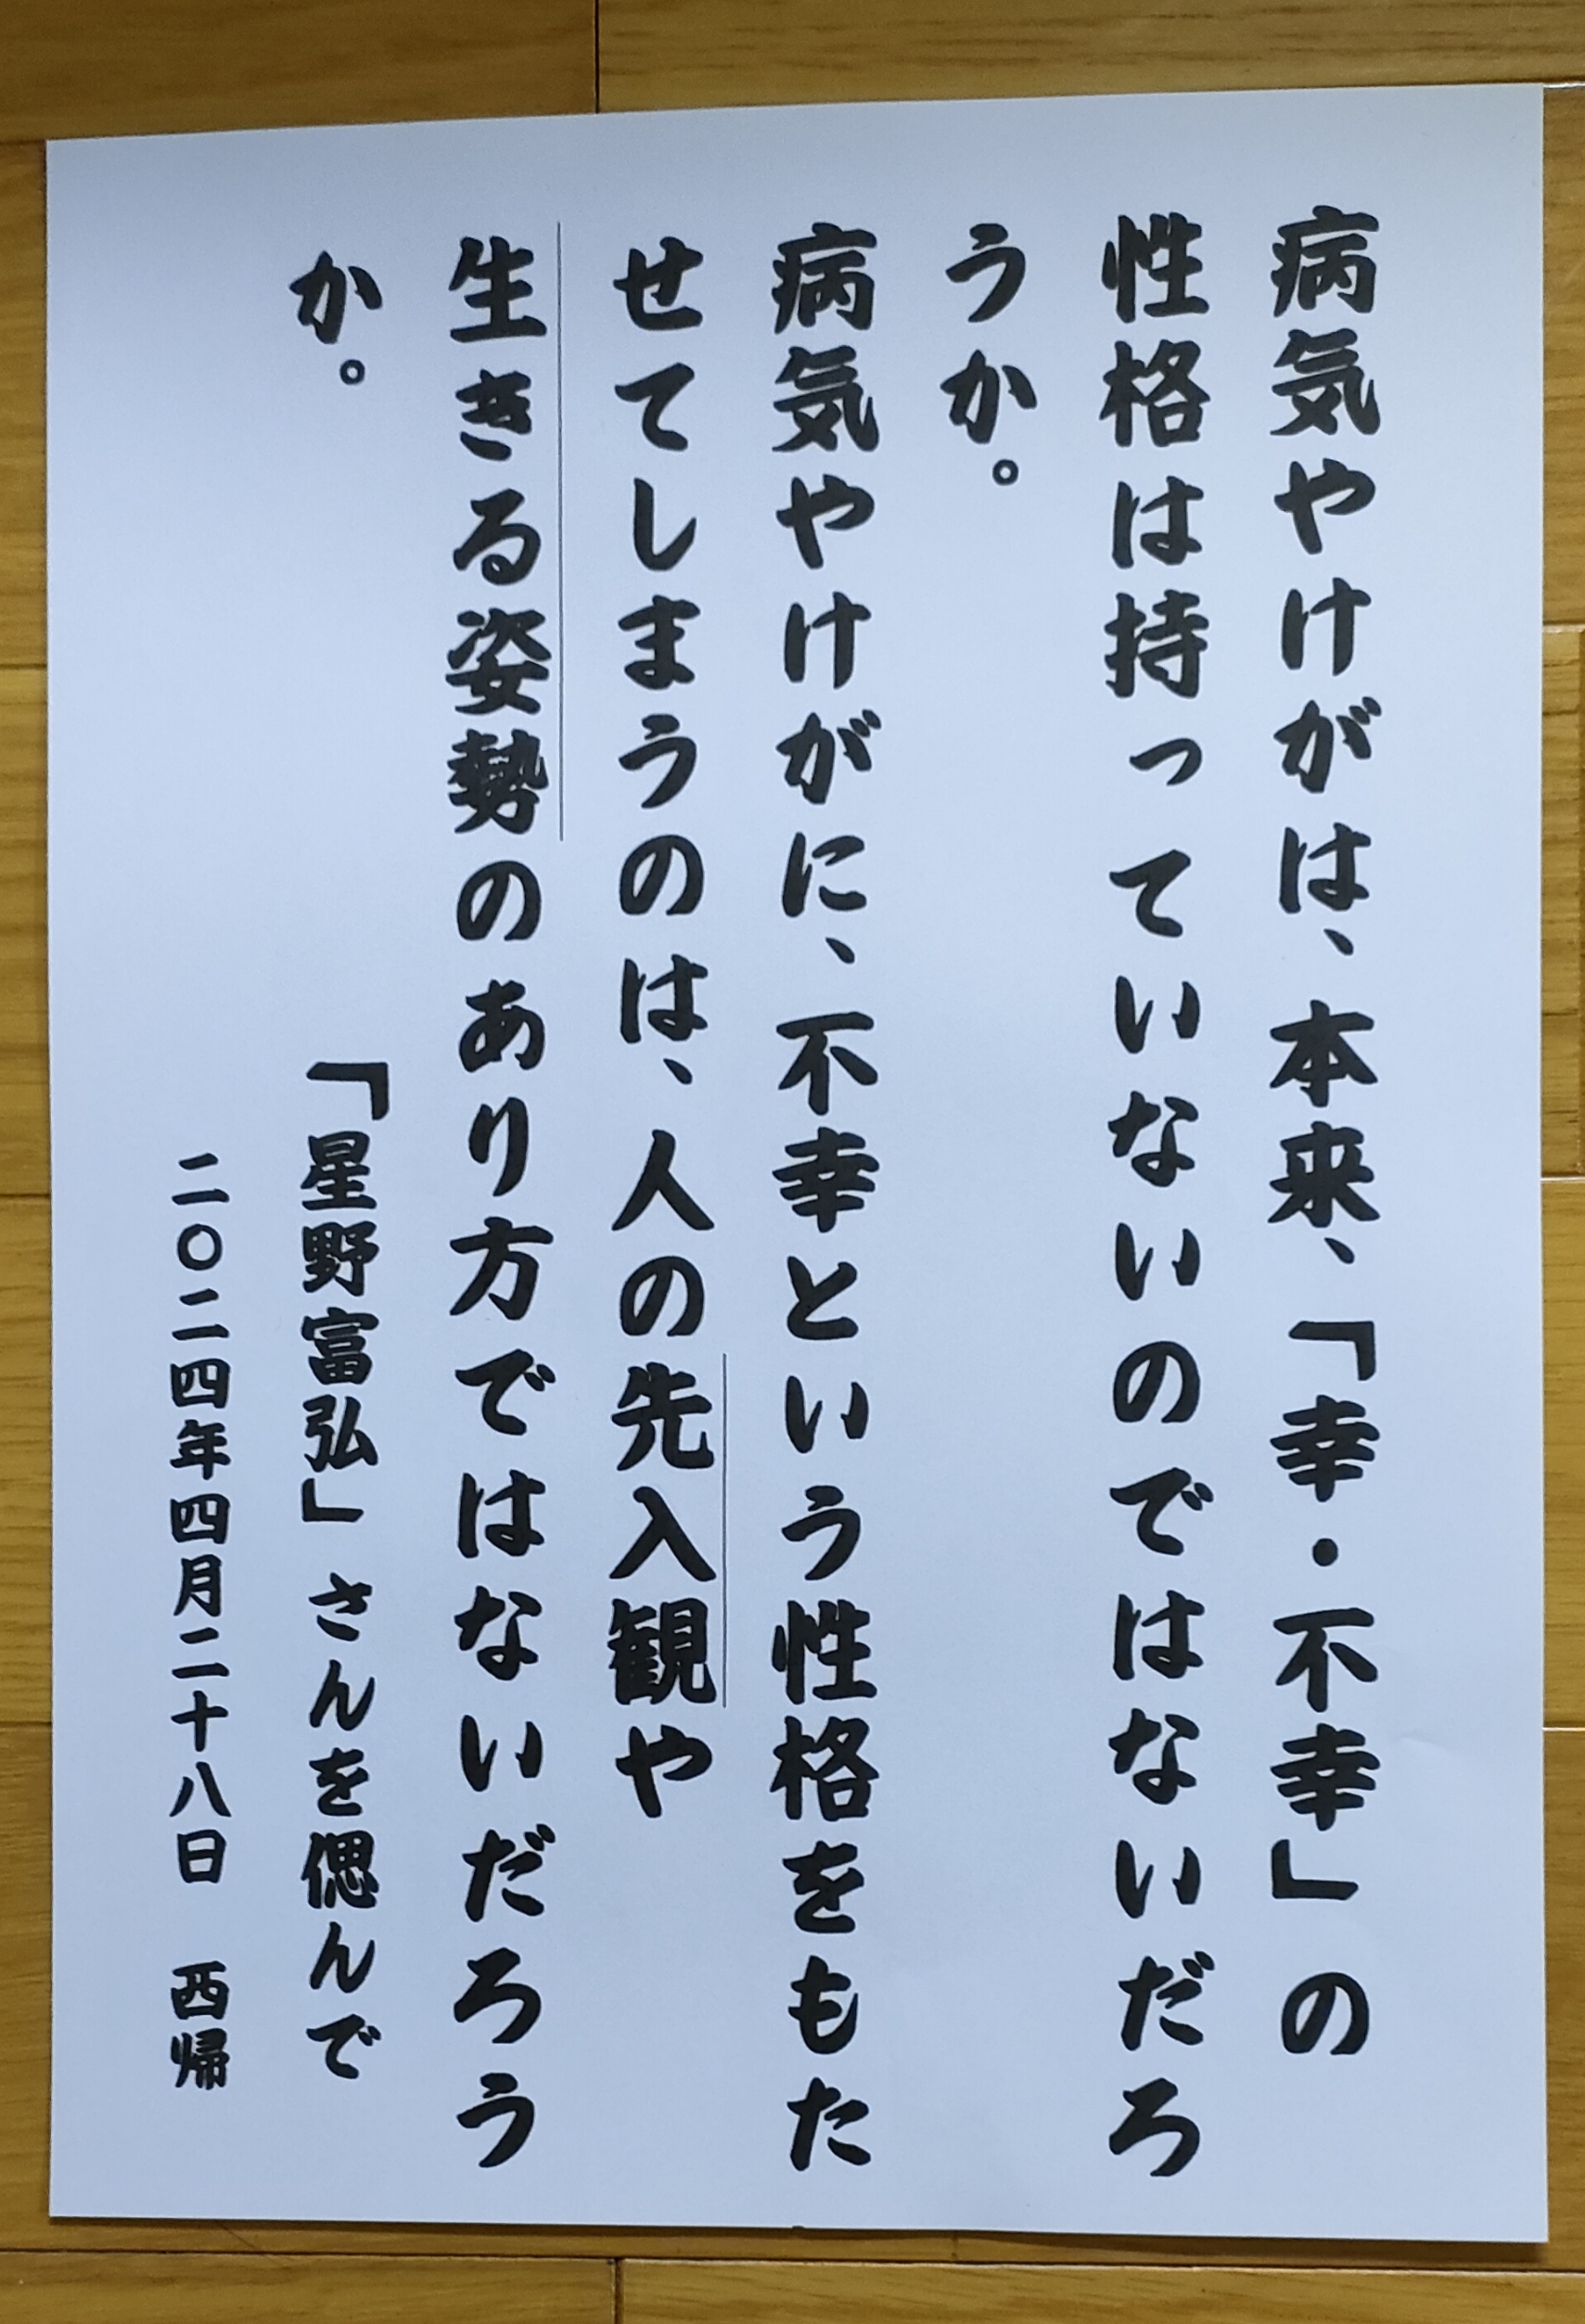 病気やけがは、本来、「幸・不幸」の
性格は持っていないのではないだろ
うか。
病気やけがに、不幸という性格をもた
せてしまうのは、人の先入観や
生きる姿勢のあり方ではないだろう
か。
「星野富弘」さんを偲んで
二〇二四年四月二十八日　西帰